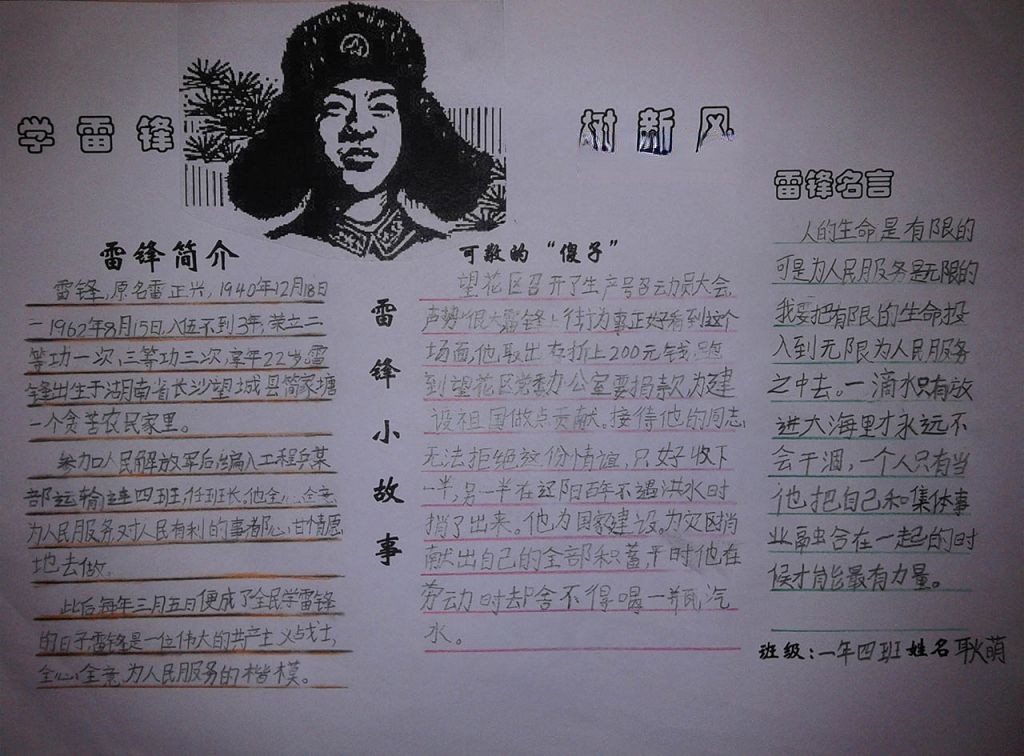 学雷锋
树新风
雷锋简介
雷锋,原名雷正兴,1940年12月18日
-1962年8月15日,入伍不到3年,荣立二
等功一次,三等功三次,享年22岁。雷
锋出生于湖南省长沙望城县简家塘
一个贫苦农民家里。
参加人民解放军后编入工程兵某
部运输连四班,任班长,他全心全意
为人民服务,对人民有利的事都心甘情愿
地去做。
此后每年三月五日便成了全民学雷锋
的日子,雷锋是一位伟大的共产主义战士,
全心全意为人民服务的楷模。
雷锋小故事
可敬的“傻子”
望花区召开了生产号召动员大会,
声势很大雷锋上街办事正好看到这个
场面,他取出存折上200元钱,跑
到望花区党委办公室要捐款,为建
设祖国做点贡献。接待他的同志
无法拒绝这份情谊,只好收下
一半,另一半在辽阳百年不遇洪水时
捎了出来。他为国家建设,为灾区捎
献出自己的全部积蓄,平时他在
劳动时却舍不得喝一瓶汽
水。
雷锋名言
人的生命是有限的
可是为人民服务是无限的
我要把有限的生命投
入到无限为人民服务
之中去。一滴水只有放
进大海里才永远不
会干涸,一个人只有当
他把自己和集体事
业融合在一起的时
候才能最有力量。
班级:一年四班 姓名 耿萌